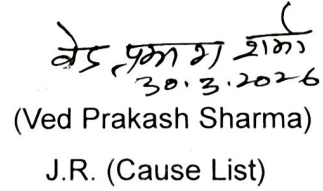 वेद प्रकाश शर्मा
30.3.2026
(Ved Prakash Sharma)
J.R. (Cause List)